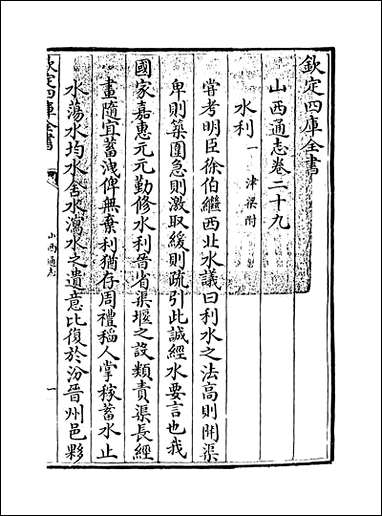 欽定四庫全書
山西通志卷二十九
水利一 津梁附
嘗考明臣徐伯繼西北水議曰利水之法高則開渠
卑則築圍急則激取緩則疏引此誠經水要言也我
國家嘉惠元元勤修水利晉省渠堰之設類責渠長經
畫隨宜蓄洩俾無棄利猶存周禮稻人掌稼蓄水止
水蕩水均水舍水瀉水之遺意比復於汾晉州邑夥
欽定四庫全書
山西通志
一